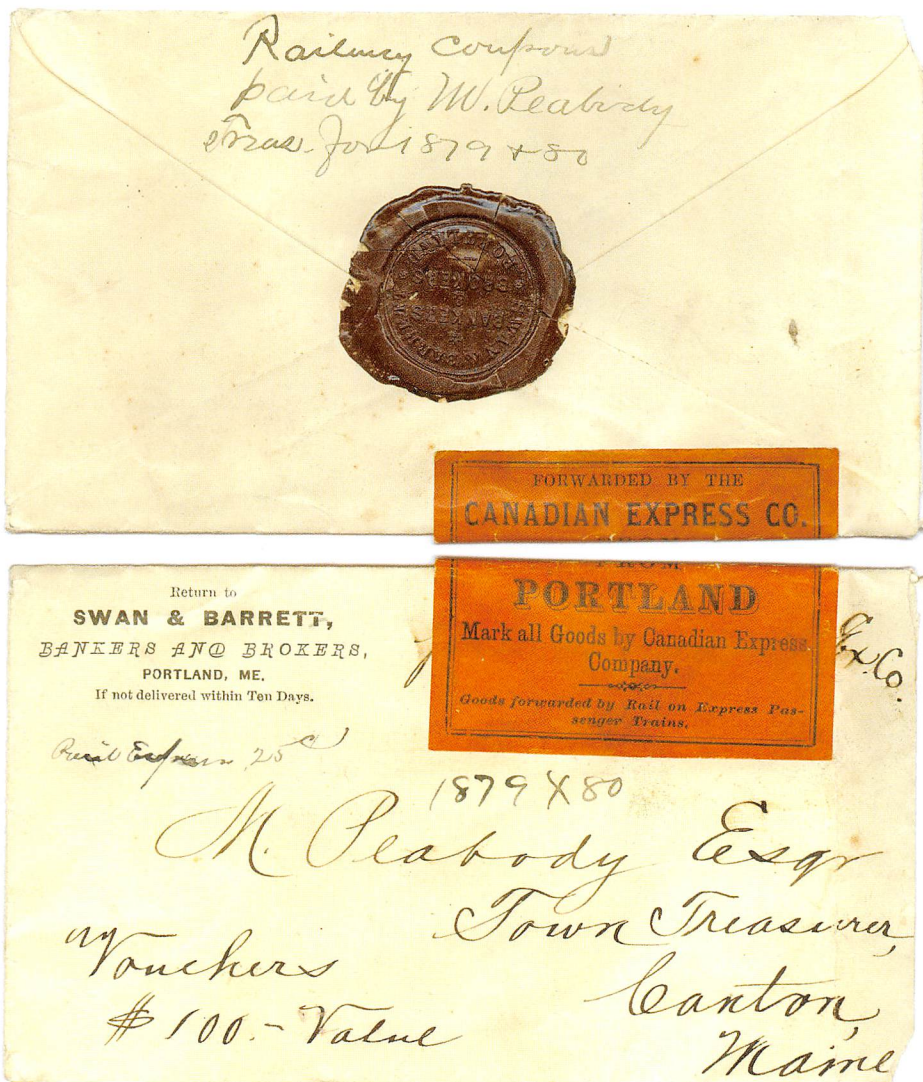 Railway Coupons
paid by M. Peabody
Treas. for 1879 + 80
PORTLAND
BANKERS
&
BROKERS
FORWARDED BY THE
CANADIAN EXPRESS CO.
FROM
PORTLAND
Mark all Goods by Canadian Express
Company.
Goods forwarded by Rail on Express Pas-
senger Trains.
Return to
SWAN & BARRETT,
BANKERS AND BROKERS,
PORTLAND, ME.
If not delivered within Ten Days.
Ex. Co.
Paid Express 25
1879 X 80
M. Peabody Esqr
Town Treasurer,
Canton,
Maine
"Vouchers
$100.- Value